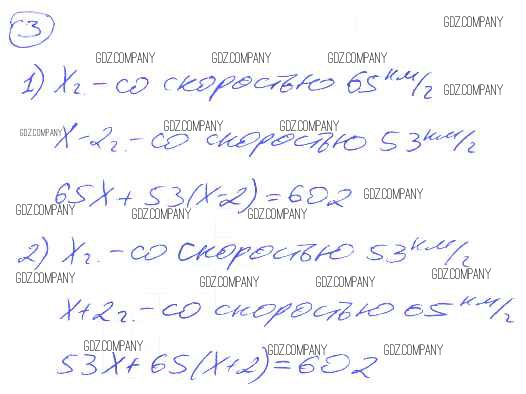 3
GDZ.COMPANY
GDZ.COMPANY GDZ.COMPANY GDZ.COMPANY
1) X г. – со скоростью 65 км/г
GDZ.COMPANY
GDZ.COMPANY GDZ.COMPANY GDZ.COMPANY
X-2 г. – со скоростью 53 км/г
65X + 53(X-2) = 602
GDZ.COMPANY
GDZ.COMPANY GDZ.COMPANY GDZ.COMPANY
2) X г. – со скоростью 53 км/г
GDZ.COMPANY GDZ.COMPANY
GDZ.COMPANY GDZ.COMPANY
X+2 г. – со скоростью 65 км/г
GDZ.COMPANY GDZ.COMPANY GDZ.COMPANY
53X + 65(X+2) = 602